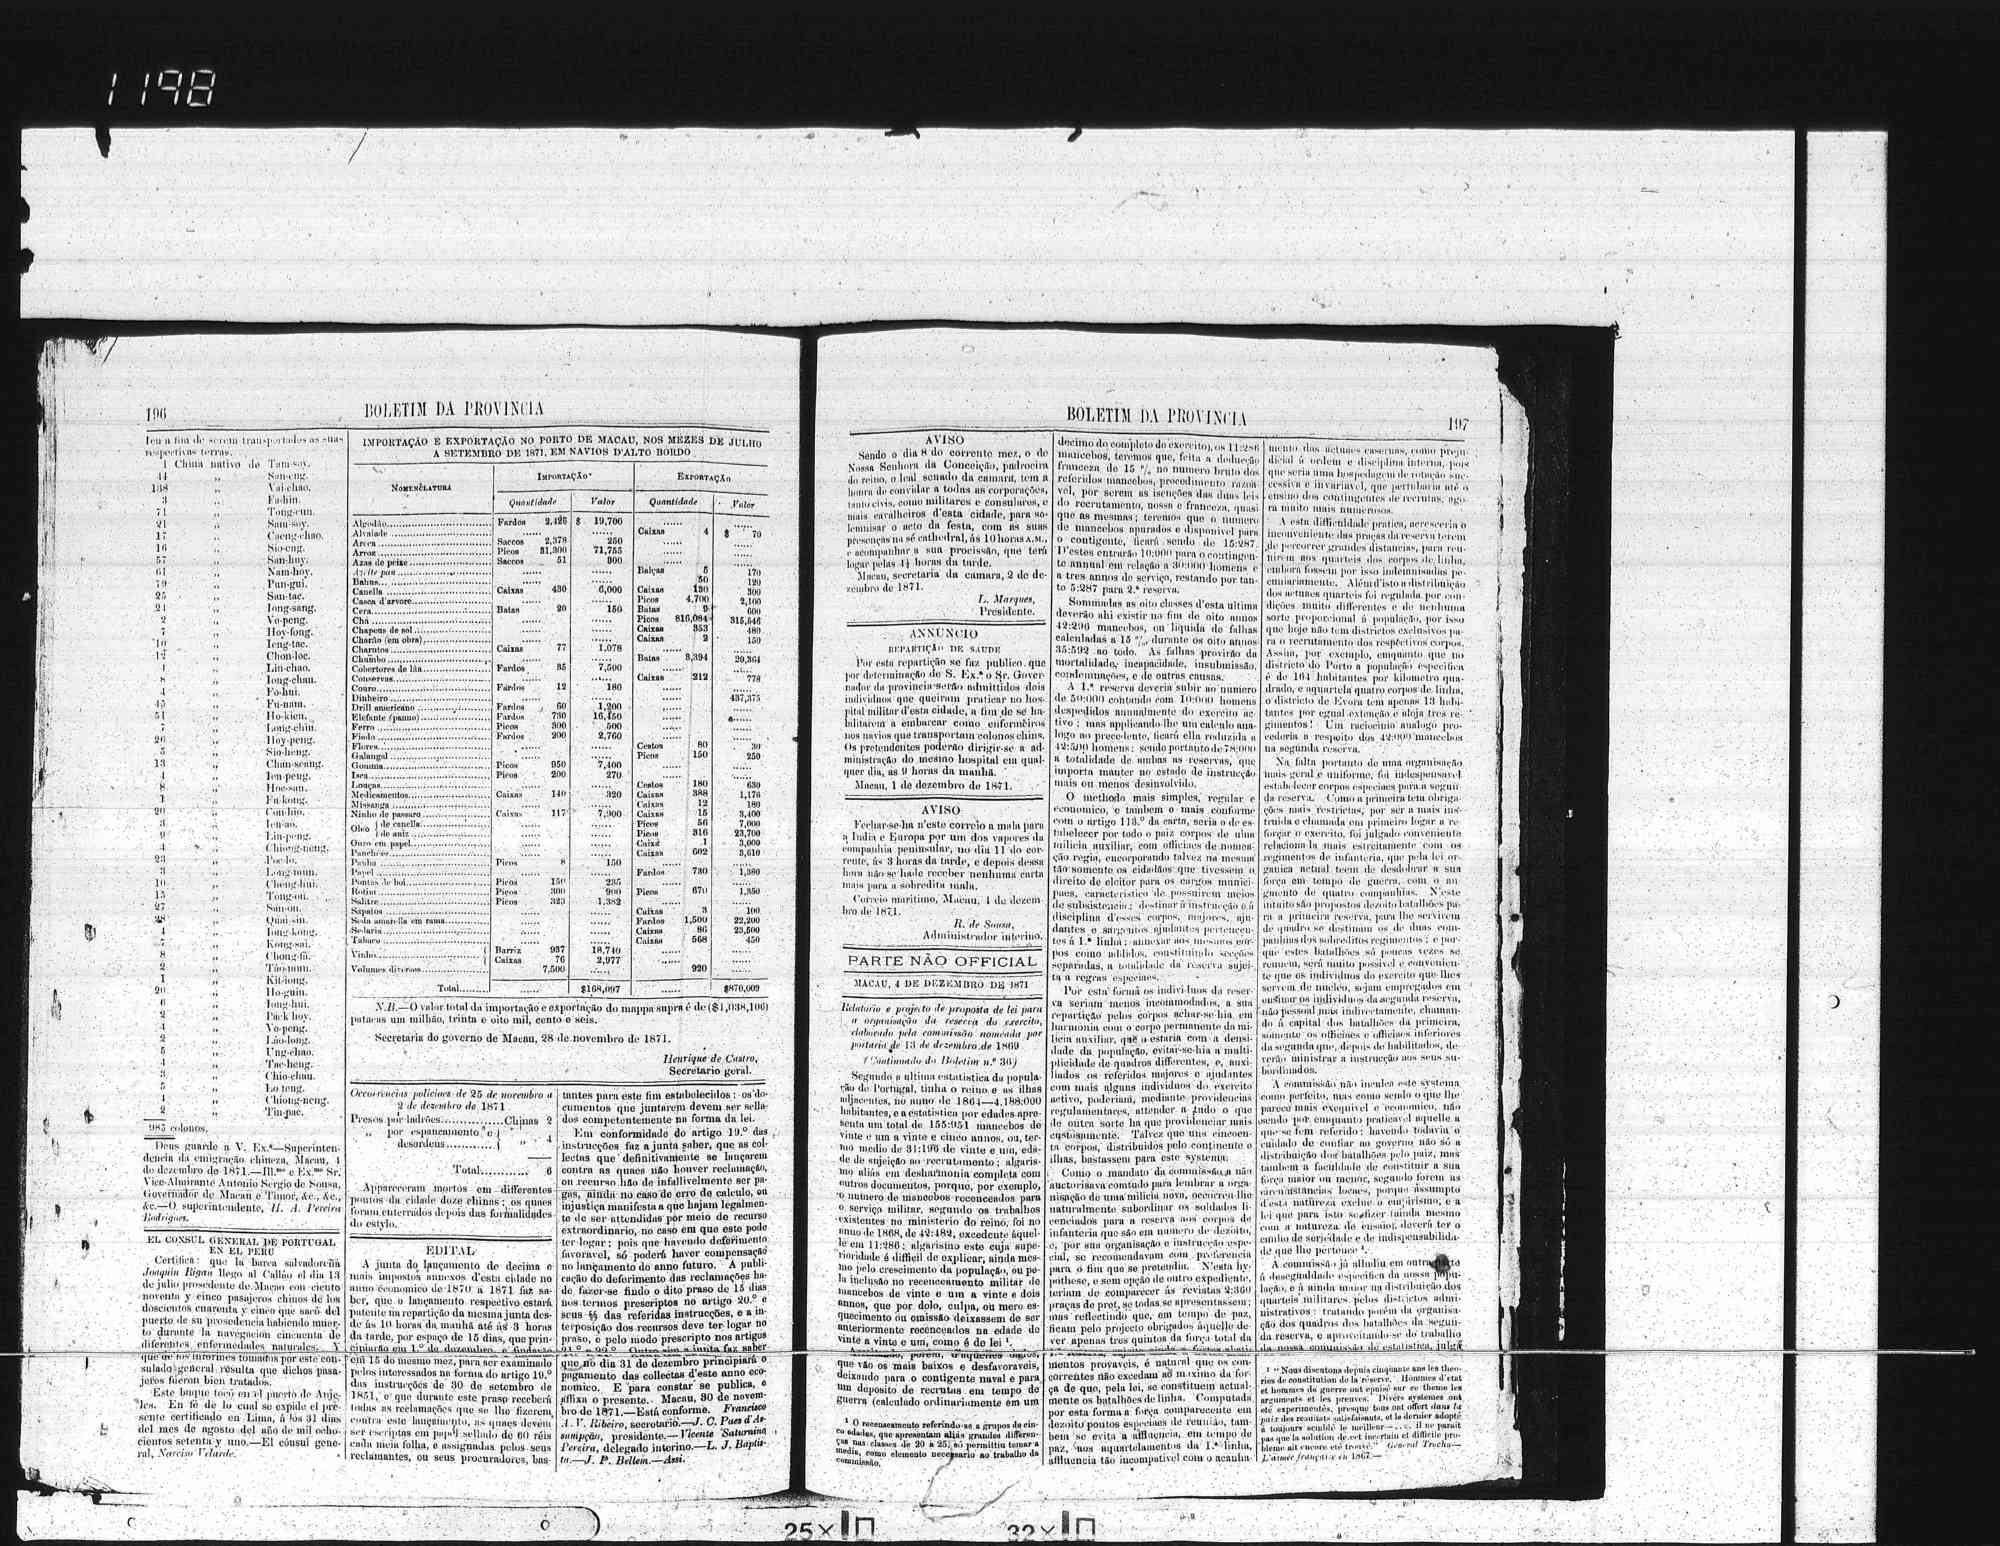 1198
196
BOLETIM DA PROVINCIA
leu a fim de serem transportados as suas
respectivas terras.
1 China nativo de Tam-soy.
44 „ San-eng.
138 „ Vai-chao.
3 „ Fa-hin.
71 „ Tong-cun.
21 „ Sam-soy.
17 „ Caeng-chao.
16 „ Sio-eng.
57 „ San-huy.
61 „ Nam-hoy.
79 „ Pun-gui.
25 „ San-tac.
21 „ Iong-sang.
2 „ Vo-peng.
7 „ Hoy-fong.
10 „ Ieng-tac.
12 „ Chon-loc.
1 „ Lin-chao.
8 „ Iong-chau.
4 „ Fo-hui.
45 „ Fu-nam.
51 „ Ho-kien.
7 „ Long-chin.
26 „ Hoy-peng.
5 „ Sio-heng.
13 „ Chan-seang.
4 „ Ien-peng.
8 „ Hoc-san.
1 „ Fu-kong.
20 „ Con-hio.
3 „ Ien-ao.
9 „ Lin-peng.
4 „ Chiong-neng.
23 „ Poc-lo.
3 „ Long-mun.
10 „ Cheng-hui.
15 „ Tong-on.
27 „ San-on.
28 „ Quai-sin.
4 „ Iong-kong.
7 „ Kong-sai.
8 „ Chong-fa.
2 „ Tão-mun.
1 „ Kit-iong.
20 „ Ho-guin.
6 „ Iong-hui.
2 „ Pack-hoy.
4 „ Vo-peng.
2 „ Lão-long.
5 „ Ung-chao.
4 „ Tac-heng.
3 „ Chio-chau.
5 „ Lo-teng.
4 „ Chiong-neng.
2 „ Tin-pac.
985 colonos.
Deus guarde a V. Ex.ª—Superinten-
dencia da emigração chineza, Macau, 4
de dezembro de 1871.—Ill.mo e Ex.mo Sr.
Vice-Almirante Antonio Sergio de Sousa,
Governador de Macau e Timor, &c., &c.,
&c.—O superintendente, H. A. Pereira
Rodrigues.
EL CONSUL GENERAL DE PORTUGAL
EN EL PERÚ
Certifica: que la barca salvadoreña
Joaquin Rigau llego al Callao el dia 13
de julio prosedente de Macao con ciento
noventa y cinco pasajeros chinos de los
doscientos cuarenta y cinco que sacó del
puerto de su prosedencia habiendo muer-
to durante la navegacion cincuenta de
diferentes enfermedades naturales. Y
que de los informes tomados por este con-
sulado general resulta que dichos pasa-
jeros fueron bien tratados.
Este buque tocó en el puerto de Anje-
les. En fé de lo cual se expide el pre-
sente certificado en Lima, á los 31 dias
del mes de agosto del año de mil ocho-
cientos setenta y uno.—El cónsul gene-
ral, Narciso Velarde.
IMPORTAÇÃO E EXPORTAÇÃO NO PORTO DE MACAU, NOS MEZES DE JULHO
A SETEMBRO DE 1871, EM NAVIOS D'ALTO BORDO
NOMENCLATURA IMPORTAÇÃO EXPORTAÇÃO
Quantidade Valor Quantidade Valor
Algodão Fardos 2,426 $ 19,700 ...... ......
Alvaiade ...... ...... Caixas 4 $ 70
Areca Saccos 2,378 250 ...... ......
Arroz Picos 31,300 71,755 ...... ......
Azas de peixe Saccos 51 300 ...... ......
Azeite pau ...... ...... Balças 5 170
Bahus ...... ...... 50 120
Canella Caixas 430 6,000 Caixas 130 300
Casca d'arvore ...... ...... Picos 4,700 2,100
Cera Batas 20 150 Batas 9 600
Chá ...... ...... Picos 816,084 315,546
Chapeus de sol ...... ...... Caixas 353 480
Charão (em obra) ...... ...... Caixas 2 150
Charutos Caixas 77 1,078
Chumbo ...... ...... Batas 3,394 20,364
Cobertores de lãa Fardos 35 7,500 ...... ......
Conservas ...... ...... Caixas 212 778
Couro Fardos 12 180 ...... ......
Dinheiro ...... ...... ...... 437,375
Drill americano Fardos 60 1,200 ...... ......
Elefante (panno) Fardos 730 16,450 ...... ......
Ferro Picos 300 500 ...... ......
Fiado Fardos 200 2,760 ...... ......
Flores ...... ...... Cestos 80 30
Galangal ...... ...... Picos 150 250
Gomma Picos 950 7,400 ...... ......
Isca Picos 200 270 ...... ......
Louças ...... ...... Cestos 180 630
Medicamentos Caixas 140 320 Caixas 388 1,176
Missanga ...... ...... Caixas 12 180
Ninho de passaro Caixas 117 7,900 Caixas 15 3,400
Oleo de canella ...... ...... Picos 56 7,000
de aniz ...... ...... Picos 316 23,700
Ouro em papel ...... ...... Caixa 1 3,000
Panchões ...... ...... Caixas 602 3,610
Panha Picos 8 150 ...... ......
Papel ...... ...... Fardos 730 1,380
Pontas de boi Picos 150 235 ...... ......
Rotim Picos 300 900 Picos 670 1,350
Salitre Picos 323 1,382 ...... ......
Sapatos ...... ...... Caixas 3 100
Seda amarella em rama ...... ...... Fardos 1,500 22,200
Sedaria ...... ...... Caixas 86 23,500
Tabaco ...... ...... Caixas 568 450
Vinho Barriz 937 18,740 ...... ......
Caixas 76 2,977 ...... ......
Volumes diversos 7,500 ...... 920 ......
Total ...... $168,097 ...... $870,009
N.B.—O valor total da importação e exportação do mappa supra é de ($1,038,106)
patacas um milhão, trinta e oito mil, cento e seis.
Secretaria do governo de Macau, 28 de novembro de 1871.
Henrique de Castro,
Secretario geral.
Occorrencias policiaes de 25 de novembro a
2 de dezembro de 1871
Presos por ladrões............Chinas 2
„ por espancamento e
desordens............ „ 4
Total............ 6
Appareceram mortos em differentes
pontos da cidade doze chinas; os quaes
foram enterrados depois das formalidades
do estylo.
EDITAL
A junta do lançamento de decima e
mais impostos annexos d'esta cidade no
anno economico de 1870 a 1871 faz sa-
ber, que o lançamento respectivo estará
patente na repartição da mesma junta des-
de ás 10 horas da manhã até ás 3 horas
da tarde, por espaço de 15 dias, que prin-
cipiarão em 1.º de dezembro, e findarão
em 15 do mesmo mez, para ser examinado
pelos interessados na forma do artigo 19.º
das instrucções de 30 de setembro de
1851, e que durante este praso receberá
todas as reclamações que se lhe fizerem,
contra este lançamento, as quaes devem
ser escriptas em papel sellado de 60 réis
cada meia folha, e assignadas pelos seus
reclamantes, ou seus procuradores, bas-
tantes para este fim estabelecidos: os do-
cumentos que juntarem devem ser sella-
dos competentemente na forma da lei.
Em conformidade do artigo 19.º das
instrucções faz a junta saber, que as col-
lectas que definitivamente se lançarem
contra as quaes não houver reclamação,
ou recurso hão de infallivelmente ser pa-
gas, ainda no caso de erro de calculo, ou
injustiça manifesta a que hajam legalmen-
te de ser attendidas por meio de recurso
extraordinario, no caso em que este pode
ter logar; pois que havendo deferimento
favoravel, só poderá haver compensação
no lançamento do anno futuro. A publi-
cação do deferimento das reclamações ha-
de fazer-se findo o dito praso de 15 dias
nos termos prescriptos no artigo 20.º e
seus §§ das referidas instrucções, e a in-
terposição dos recursos deve ter logar no
praso, e pelo modo prescripto nos artigos
21.º e 22.º Outro sim a junta faz saber
que no dia 31 de dezembro principiará o
pagamento das collectas d'este anno eco-
nomico. E para constar se publica, e
affixa o presente. Macau, 30 de novem-
bro de 1871.—Está conforme. Francisco
A. V. Ribeiro, secretario.—J. C. Paes d'As-
sumpção, presidente.—Vicente Saturnino
Pereira, delegado interino.—L. J. Baptis-
ta.—J. P. Bellem.—Assi.
BOLETIM DA PROVINCIA
197
AVISO
Sendo o dia 8 do corrente mez, o de
Nossa Senhora da Conceição, padroeira
do reino, o leal senado da camara, tem a
honra de convidar a todas as corporações,
tanto civis, como militares e consulares, e
mais cavalheiros d'esta cidade, para so-
lemnisar o acto da festa, com as suas
presenças na sé cathedral, ás 10 horas A.M.,
e acompanhar a sua procissão, que terá
logar pelas 4½ horas da tarde.
Macau, secretaria da camara, 2 de de-
zembro de 1871.
L. Marques,
Presidente.
ANNUNCIO
REPARTIÇÃO DE SAUDE
Por esta repartição se faz publico que
por determinação de S. Ex.ª o Sr. Gover-
nador da provincia serão admittidos dois
individuos que queiram praticar no hos-
pital militar d'esta cidade, a fim de se ha-
bilitarem a embarcar como enfermeiros
nos navios que transportam colonos chins.
Os pretendentes poderão dirigir-se á ad-
ministração do mesmo hospital em qual-
quer dia, as 9 horas da manhã.
Macau, 1 de dezembro de 1871.
AVISO
Fechar-se-ha n'este correio a mala para
a India e Europa por um dos vapores da
companhia peninsular, no dia 11 do cor-
rente, ás 3 horas da tarde, e depois dessa
hora não se hade receber nenhuma carta
mais para a sobredita mala.
Correio maritimo, Macau, 4 de dezem-
bro de 1871.
R. de Sousa,
Administrador interino.
PARTE NÃO OFFICIAL
MACAU, 4 DE DEZEMBRO DE 1871
Relatorio e projecto de proposta de lei para
a organisação da reserva do exercito,
elaborado pela commissão nomeada por
portaria de 13 de dezembro de 1869
(Continuado do Boletim n.º 36)
Segundo a ultima estatistica da popula-
ção de Portugal, tinha o reino e as ilhas
adjacentes, no anno de 1864—4.188:000
habitantes, e a estatistica por edades apre-
senta um total de 155:951 mancebos de
vinte e um a vinte e cinco annos, ou, ter-
mo medio de 31:196 de vinte e um, eda-
de de sujeição ao recrutamento; algaris-
mo aliás em desharmonia completa com
outros documentos, porque, por exemplo,
o numero de mancebos recenceados para
o serviço militar, segundo os trabalhos
existentes no ministerio do reino, foi no
anno de 1868, de 42:482, excedente áquel-
le em 11:286; algarismo este cuja supe-
rioridade é difficil de explicar, ainda mes-
mo pelo crescimento da população, ou pe-
la inclusão no recenceamento militar de
mancebos de vinte e um a vinte e dois
annos, que por dolo, culpa, ou mero es-
quecimento ou omissão deixassem de ser
anteriormente recenceados na edade de
vinte a vinte e um, como é de lei ¹.
porém, d'aquelles dados,
que vão os mais baixos e desfavoraveis,
deixando para o contigente naval e para
um deposito de recrutas em tempo de
guerra (calculado ordinariamente em um
¹ O recenseamento referindo-se a grupos de cin-
co edades, que apresentam aliás grandes differen-
ças nas classes de 20 a 25, só permittiu tomar a
media, como elemento necessario ao trabalho da
commissão.
decimo do completo do exercito), os 11:286
mancebos, teremos que, feita a deducção
franceza de 15 % no numero bruto dos
referidos mancebos, procedimento razoa-
vel, por serem as isenções das duas leis
do recrutamento, nossa e franceza, quasi
que as mesmas; teremos que o numero
de mancebos apurados e disponivel para
o contigente, ficará sendo de 15:287.
D'estes entrarão 10:000 para o contingen-
te annual em relação a 30:000 homens e
a tres annos de serviço, restando por tan-
to 5:287 para 2.ª reserva.
Sommadas as oito classes d'esta ultima
deverão ahi existir no fim de oito annos
42:296 mancebos, ou liquida de falhas
calculadas a 15 %, durante os oito annos
35:592 ao todo. As falhas provirão da
mortalidade, incapacidade, insubmissão,
condemnações, e de outras causas.
A 1.ª reserva deveria subir ao numero
de 50:000 contando com 10:000 homens
despedidos annualmente do exercito ac-
tivo; mas applicando-lhe um calculo ana-
logo ao precedente, ficará ella reduzida a
42:500 homens; sendo portanto de 78:000
a totalidade de ambas as reservas, que
importa manter no estado de instrucção
mais ou menos desinvolvido.
O methodo mais simples, regular e
economico, e tambem o mais conforme
com o artigo 113.º da carta, seria o de es-
tabelecer por todo o paiz corpos de uma
milicia auxiliar, com officiaes de nomea-
ção regia, encorporando talvez na mesma
tão somente os cidadãos que tivessem o
direito de eleitor para os cargos munici-
paes, caracteristico de possuirem meios
de subsistencia; destinar á instrucção e á
disciplina d'esses corpos, majores, aju-
dantes e sargentos ajudantes pertencen-
tes á 1.ª linha; annexar aos mesmos cor-
pos como addidos, constituindo secções
separadas, a totalidade da reserva sujei-
ta a regras especiaes.
Por esta forma os individuos da reser-
va seriam menos incommodados, a sua
repartição pelos corpos achar-se-hia em
harmonia com o corpo permanente da mi-
licia auxiliar, que o estaria com a densi-
dade da população, evitar-se-hia a multi-
plicidade de quadros differentes, e, auxi-
liados os referidos majores e ajudantes
com mais alguns individuos do exercito
activo, poderiam, mediante providencias
regulamentares, attender a tudo o que
de outra sorte ha que providenciar mais
custosamente. Talvez que uns cincoen-
ta corpos, distribuidos pelo continente e
ilhas, bastassem para este systema.
Como o mandato da commissão a não
auctorisava comtudo para lembrar a orga-
nisação de uma milicia nova, occorreu-lhe
naturalmente subordinar os soldados li-
cenciados para a reserva aos corpos de
infanteria que são em numero de dezoito,
e, por sua organisação e instrucção espe-
cial, se recomendavam com preferencia
para o fim que se pretendia. N'esta hy-
pothese, e sem opção de outro expediente,
teriam de comparecer ás revistas 2:360
praças de pret, se todas se apresentassem;
mas reflectindo que, em tempo de paz,
ficam pelo projecto obrigados áquelle de-
ver apenas tres quintos da força total da
mentos provaveis, é natural que os con-
correntes não excedam ao maximo da for-
ça de que, pela lei, se constituem actual-
mente os batalhões de linha. Computada
por esta forma a força comparecente em
dezoito pontos especiaes de reunião, tam-
bem se evita a affluencia, em tempo de
paz, aos aquartelamentos da 1.ª linha,
affluencia tão incompativel com o acanha-
mento das actuaes casernas, como preju-
dicial á ordem e disciplina interna, pois
que seria uma hospedagem de rotação suc-
cessiva e invariavel, que pertubaria até o
ensino dos contingentes de recrutas, ago-
ra muito mais numerosos.
A esta difficuldade pratica, acresceria o
inconveniente das praças da reserva terem
de percorrer grandes distancias, para reu-
nirem aos quarteis dos corpos de linha,
embora fossem por isso indemnisadas pe-
cuniariamente. Além d'isto a distribuição
dos actuaes quarteis foi regulada por con-
dições muito differentes e de nenhuma
sorte proporcional á população, por isso
que hoje não tem districtos exclusivos pa-
ra o recrutamento dos respectivos corpos.
Assim, por exemplo, emquanto que no
districto do Porto a população especifica
é de 164 habitantes por kilometro qua-
drado, e aquartela quatro corpos de linha,
o districto de Evora tem apenas 13 habi-
tantes por egual extenção e aloja tres re-
gimentos! Um raciocinio analogo pro-
cederia a respeito dos 42:000 mancebos
na segunda reserva.
Na falta portanto de uma organisação
mais geral e uniforme, foi indespensavel
estabelecer corpos especiaes para a segun-
da reserva. Como a primeira tem obriga-
ções mais restrictas, por ser a mais ins-
truida e chamada em primeiro logar a re-
forçar o exercito, foi julgado conveniente
relaciona-la mais estreitamente com os
regimentos de infanteria, que pela lei or-
ganica actual teem de desdobrar a sua
força em tempo de guerra, com o au-
gmento de quatro companhias. N'este
intuito são propostos dezoito batalhões pa-
ra a primeira reserva, para lhe servirem
de quadro se destinam os de duas com-
panhias dos sobreditos regimentos; e por-
que estes batalhões só poucas vezes se
reunem, será muito possivel e convenien-
te que os individuos do exercito que lhes
servem de nucleo, sejam empregados em
ensinar os individuos da segunda reserva,
não pessoal mas indirectamente, chaman-
do á capital dos batalhões da primeira,
somente os officiaes e officiaes inferiores
da segunda que, depois de habilitados, de-
verão ministrar a instrucção aos seus su-
bordinados.
A commissão não inculca este systema
como perfeito, mas como sendo o que lhe
parece mais exequivel e economico, não
sendo por emquanto praticavel aquelle a
que se tem referido; havendo todavia o
cuidado de confiar ao governo não só a
distribuição dos batalhões pelo paiz, mas
tambem a faculdade de constituir a sua
força maior ou menor, segundo forem as
circunstancias locaes, porque assumpto
d'esta natureza exclue o empirismo, e a
lei que para isto se fizer ainda mesmo
com a natureza de ensaio, deverá ter o
cunho de seriedade e de indispensabilida-
de que lhe pertence ¹.
A commissão já alludiu em outra parte
á desegualdade especifica da nossa popu-
lação, e á ainda maior na distribuição dos
quarteis militares pelos districtos admi-
nistrativos: tratando porém da organisa-
ção dos quadros dos batalhões da segun-
da reserva, e aproveitando-se do trabalho
da nossa commissão de estatistica, julga
¹ "Nous discutons depuis cinquante ans les theo-
ries de constitution de la réserve. Hommes d'etat
et hommes de guerre ont epuisé sur ce theme les
arguments et les preuves. Divers systemes ont
été experimentés, presque tous ont offert dans la
paix des resultats satisfaisants, et le dernier adopté
à toujours semblé le meilleur—... il ne parait
pas que la solution de cet incertain et difficile pro-
bleme ait encore été trouvé." General Trochu—
L'armée française en 1867.—
25×
32×